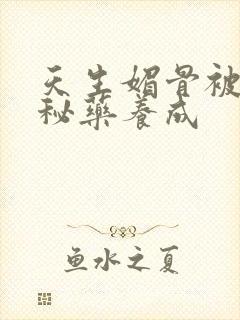 天生媚骨被
秘药养成
鱼水之夏